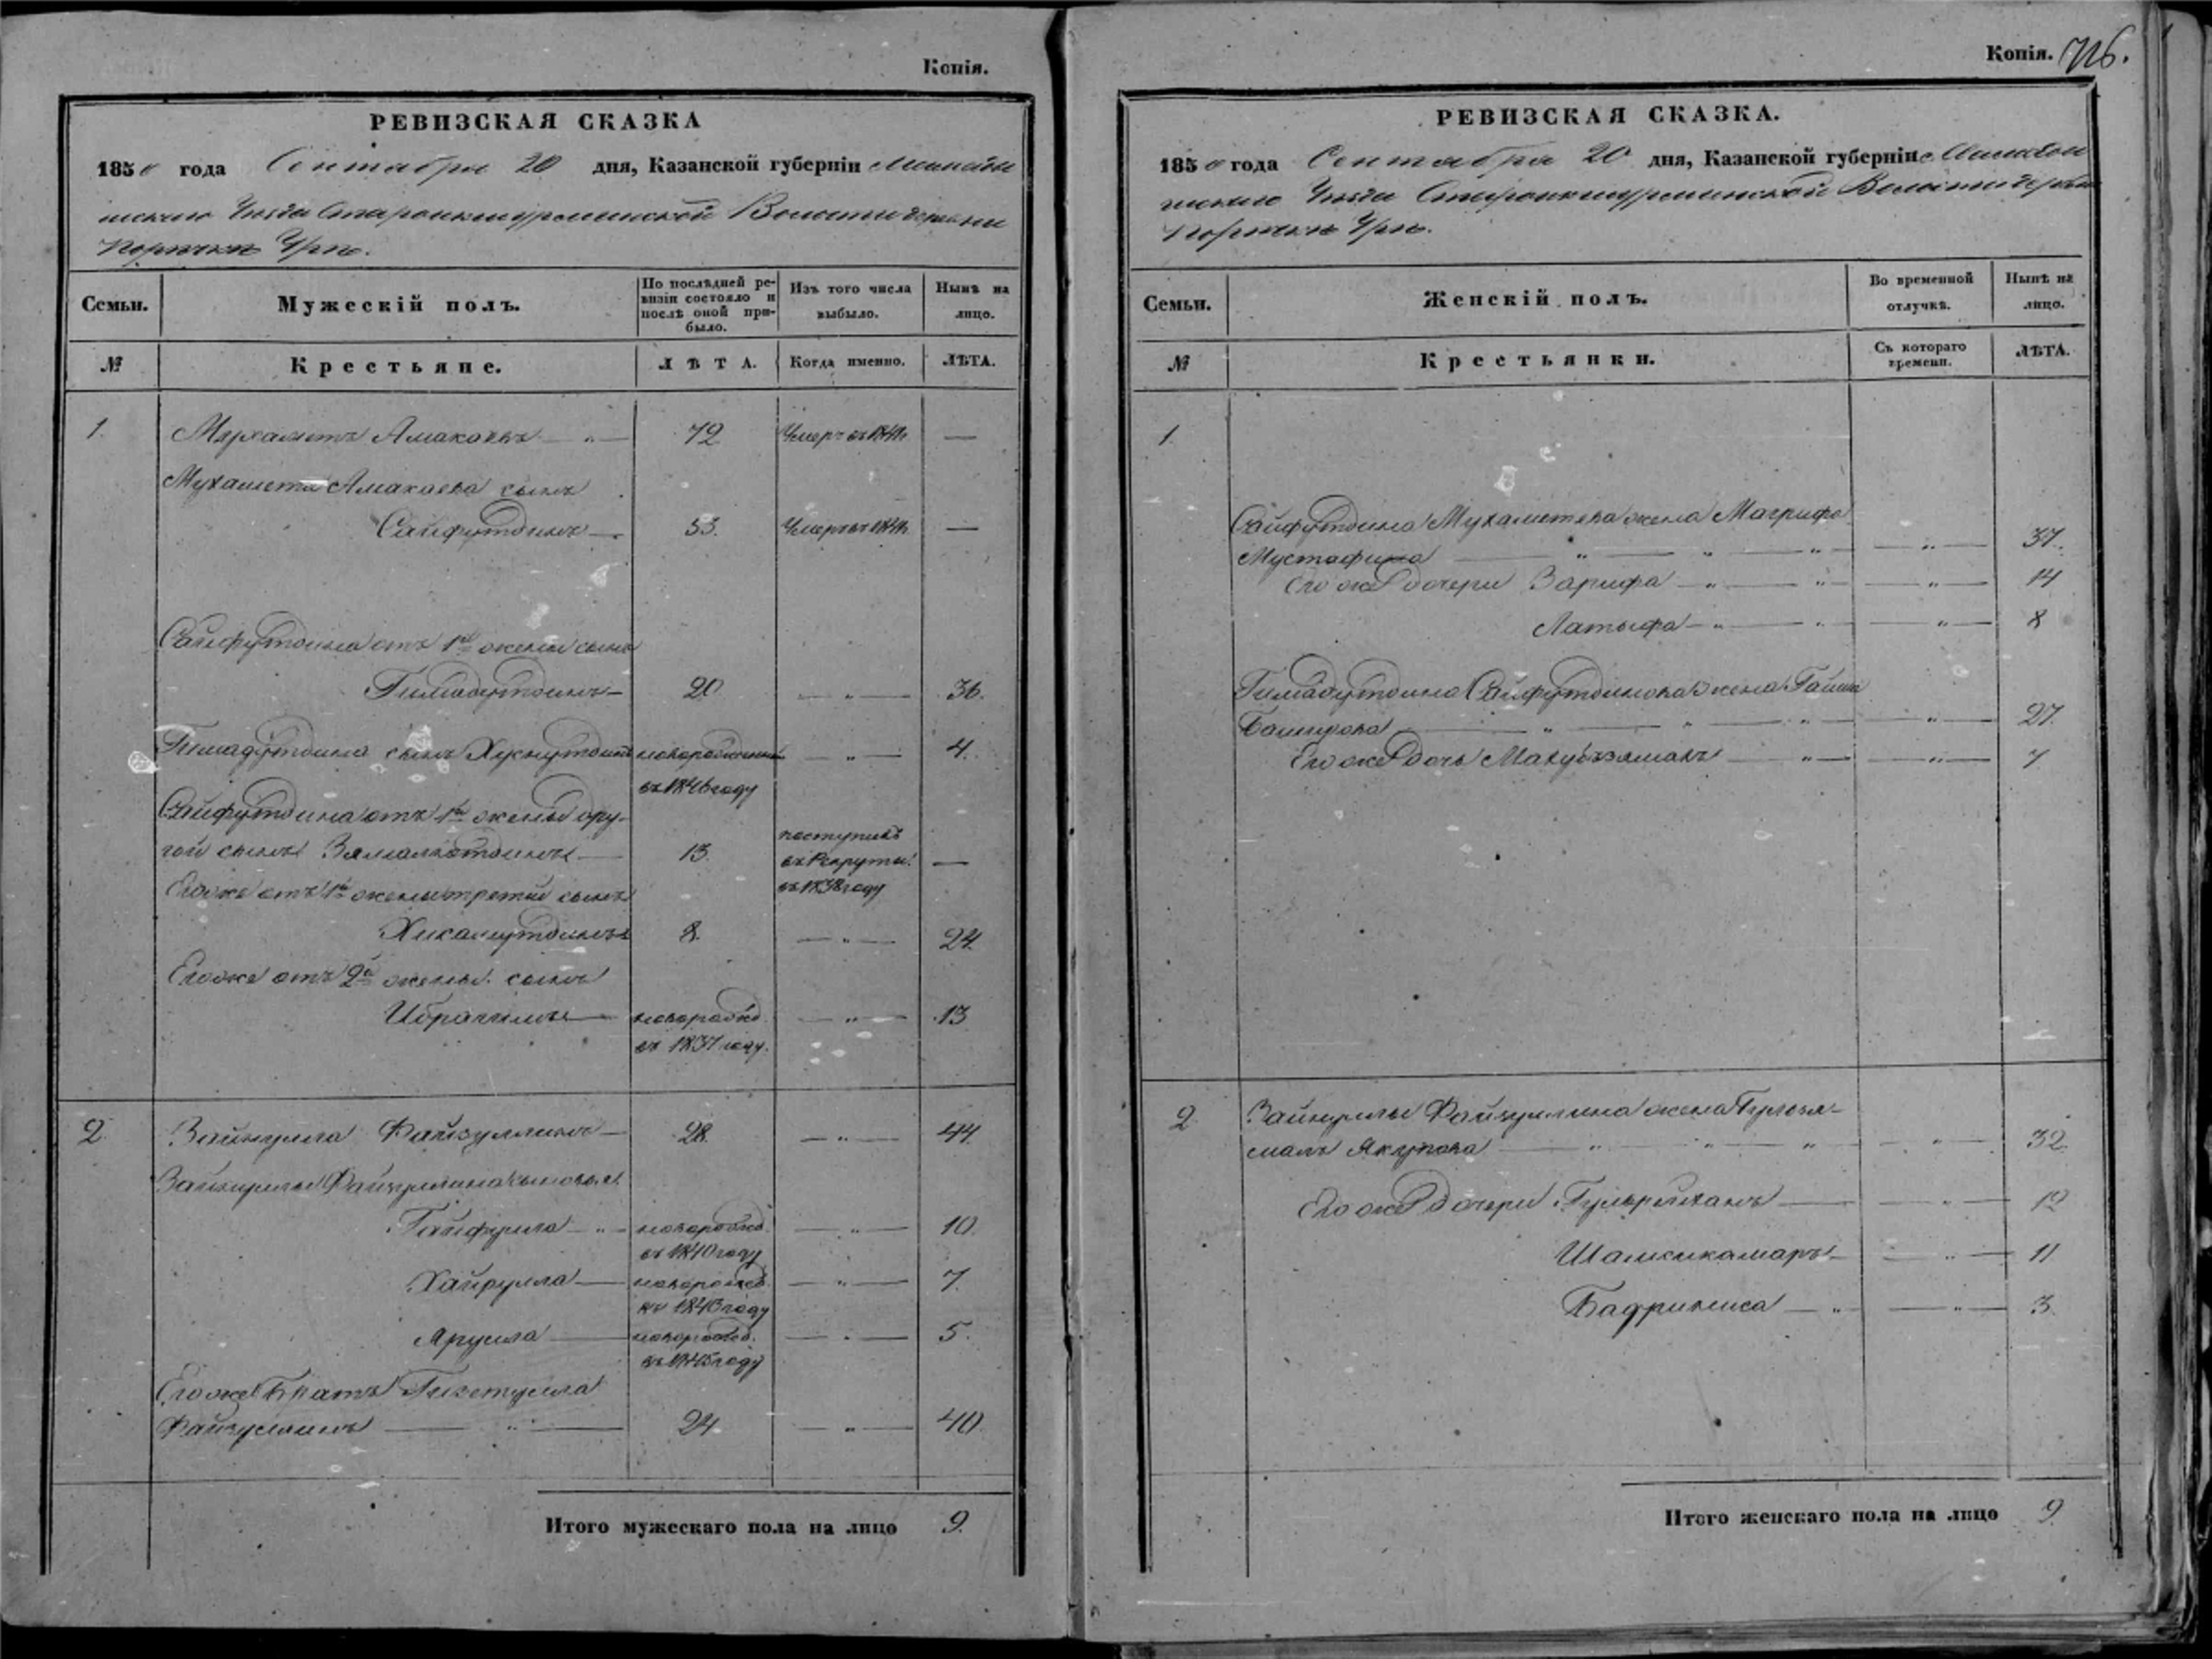 Копія.
РЕВИЗСКАЯ СКАЗКА
1850 года Сентября 20 дня, Казанской губерніи Мамады
шскаго Уезда Волости деревни
Порѣчки
Семьи.
Мужескій полъ.
По послѣдней ре-
визіи состояло и
послѣ оной при-
было.
Изъ того числа
выбыло.
Нынѣ на
лицо.
№
Крестьяне.
ЛѢТА.
Когда именно.
ЛѢТА.
1. Мухаметъ Амакаевъ — " — 72 Умеръ въ —
Мухамета Амакаева сынъ
Сайфутдинъ — 53. Умеръ въ —
Сайфутдина отъ 1й жены сынъ
Гимадутдинъ — 20 — " — 36.
Гимадутдина сынъ Хуснутдинъ новорожденный — " — 4.
въ 1846 году
Сайфутдина отъ 1й жены дру-
гой сынъ 13. поступилъ
въ Рекруты
въ 1838 году —
Его же отъ 1й жены третій сынъ
8. — " — 24.
Его же отъ 2й жены сынъ
Ибрагимъ — новорожд. — " — 13
въ 1837 году.
2. Зайнулла Файзуллинъ — 28. — " — 44.
Зайнуллы Файзуллина сыновья
новорожд. — " — 10.
въ 1840 году
Хайрулла — новорожд. — " — 7.
въ 1843 году
Ярулла — новорожд. — " — 5.
въ 1845 году
Его же Братъ
Файзуллинъ — " — 24 — " — 40.
Итого мужескаго пола на лицо 9.
Копія. 726.
РЕВИЗСКАЯ СКАЗКА.
1850 года Сентября 20 дня, Казанской губерніи Мамады
шскаго Уезда Волости дерев
Порѣчки
Семьи.
Женскій полъ.
Во временной
отлучкѣ.
Нынѣ на
лицо.
№
Крестьянки.
Съ котораго
времени.
ЛѢТА.
1.
Сайфутдина Мухаметева жена Магрифа
Мустафина — " — " — " — — " — 37.
Его же дочери Зарифа — " — " — — " — 14
Латыфа — " — — " — 8
Гимадутдина Сайфутдинова жена Гайша
Баширова — " — " — " — — " — 27.
Его же дочь — " — — " — 7
2. Зайнуллы Файзуллина жена Гульзя-
малъ Якупова — " — " — " — " — 32.
Его же дочери — " — 12
Шамсикамаръ — " — 11
Бадриниса — " — — " — 3.
Итого женскаго пола на лицо 9